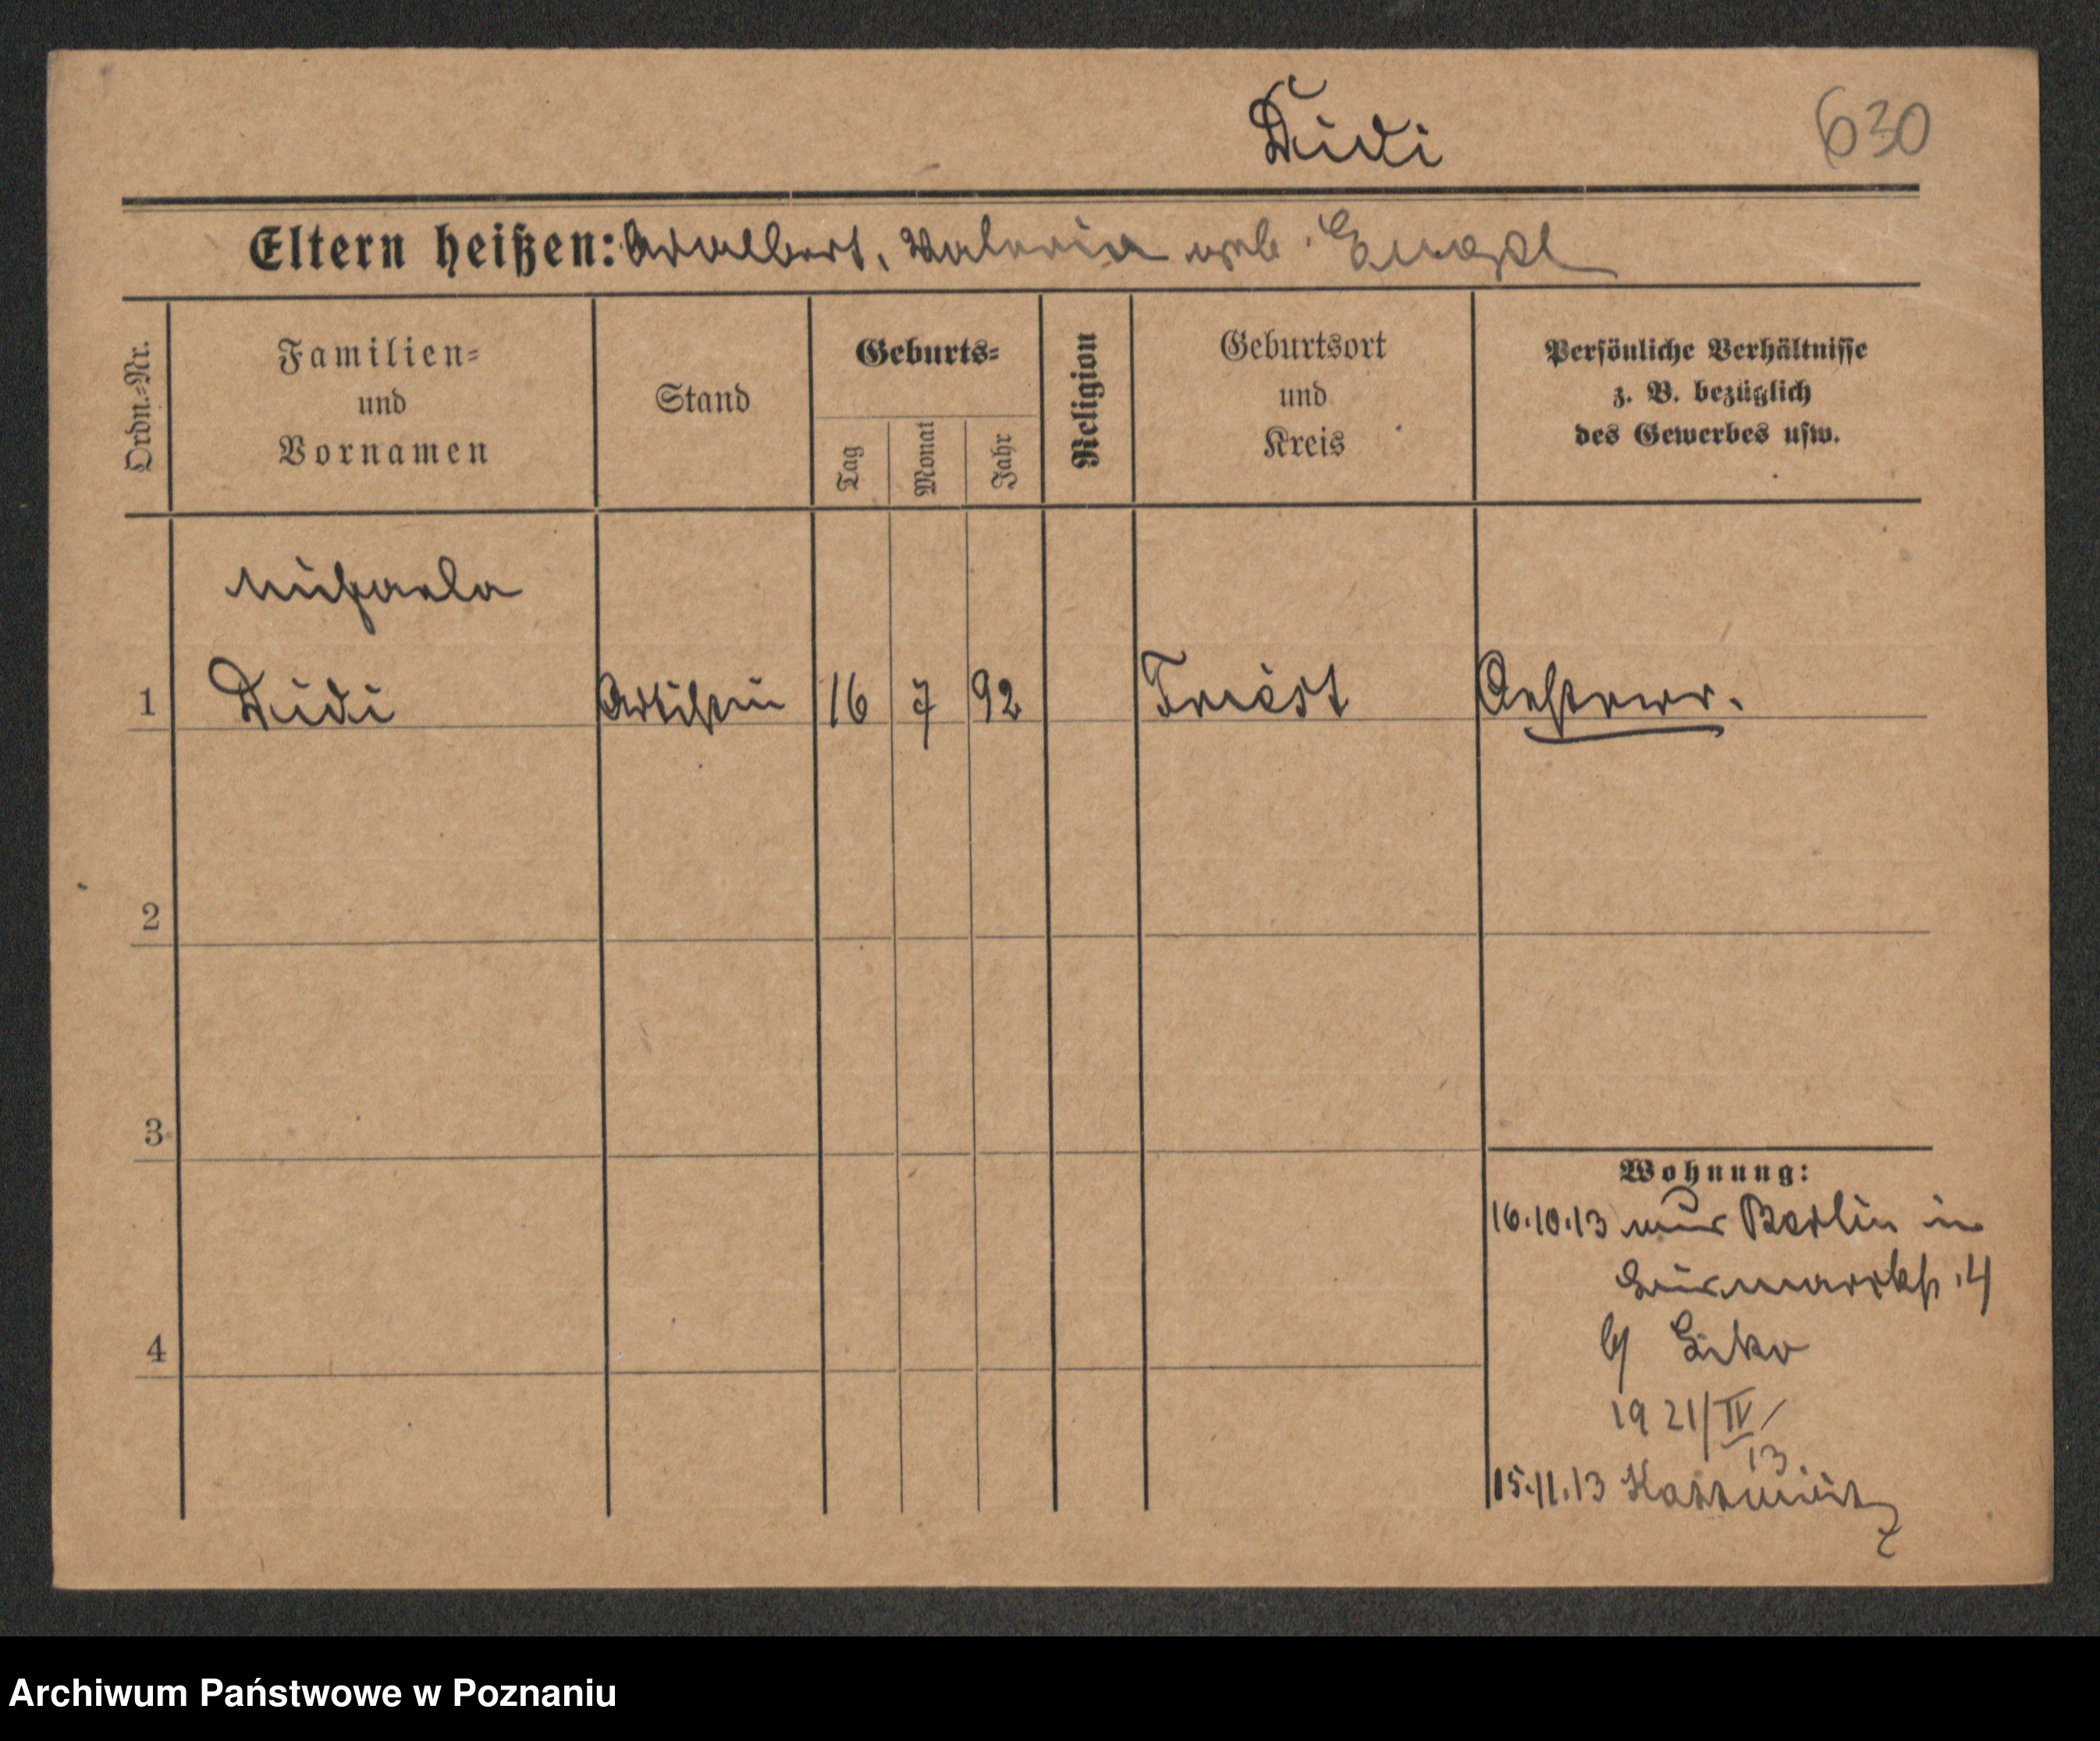 Dudi
630
Eltern heißen: Adalbert, Valeria geb. Engel
Ordn.=Nr.
Familien=
und
Vornamen
Stand
Geburts=
Tag
Monat
Jahr
Religion
Geburtsort
und
Kreis
Persönliche Verhältnisse
z. B. bezüglich
des Gewerbes usw.
Michaela
1 Dudi Artistin 16 7 92 Triest Oesterr.
2
3
4
Wohnung:
16.10.13 aus Berlin in
Bismarckstr. 4
b/
1921/IV/
13.
15.11.13 Kattowitz
Archiwum Państwowe w Poznaniu